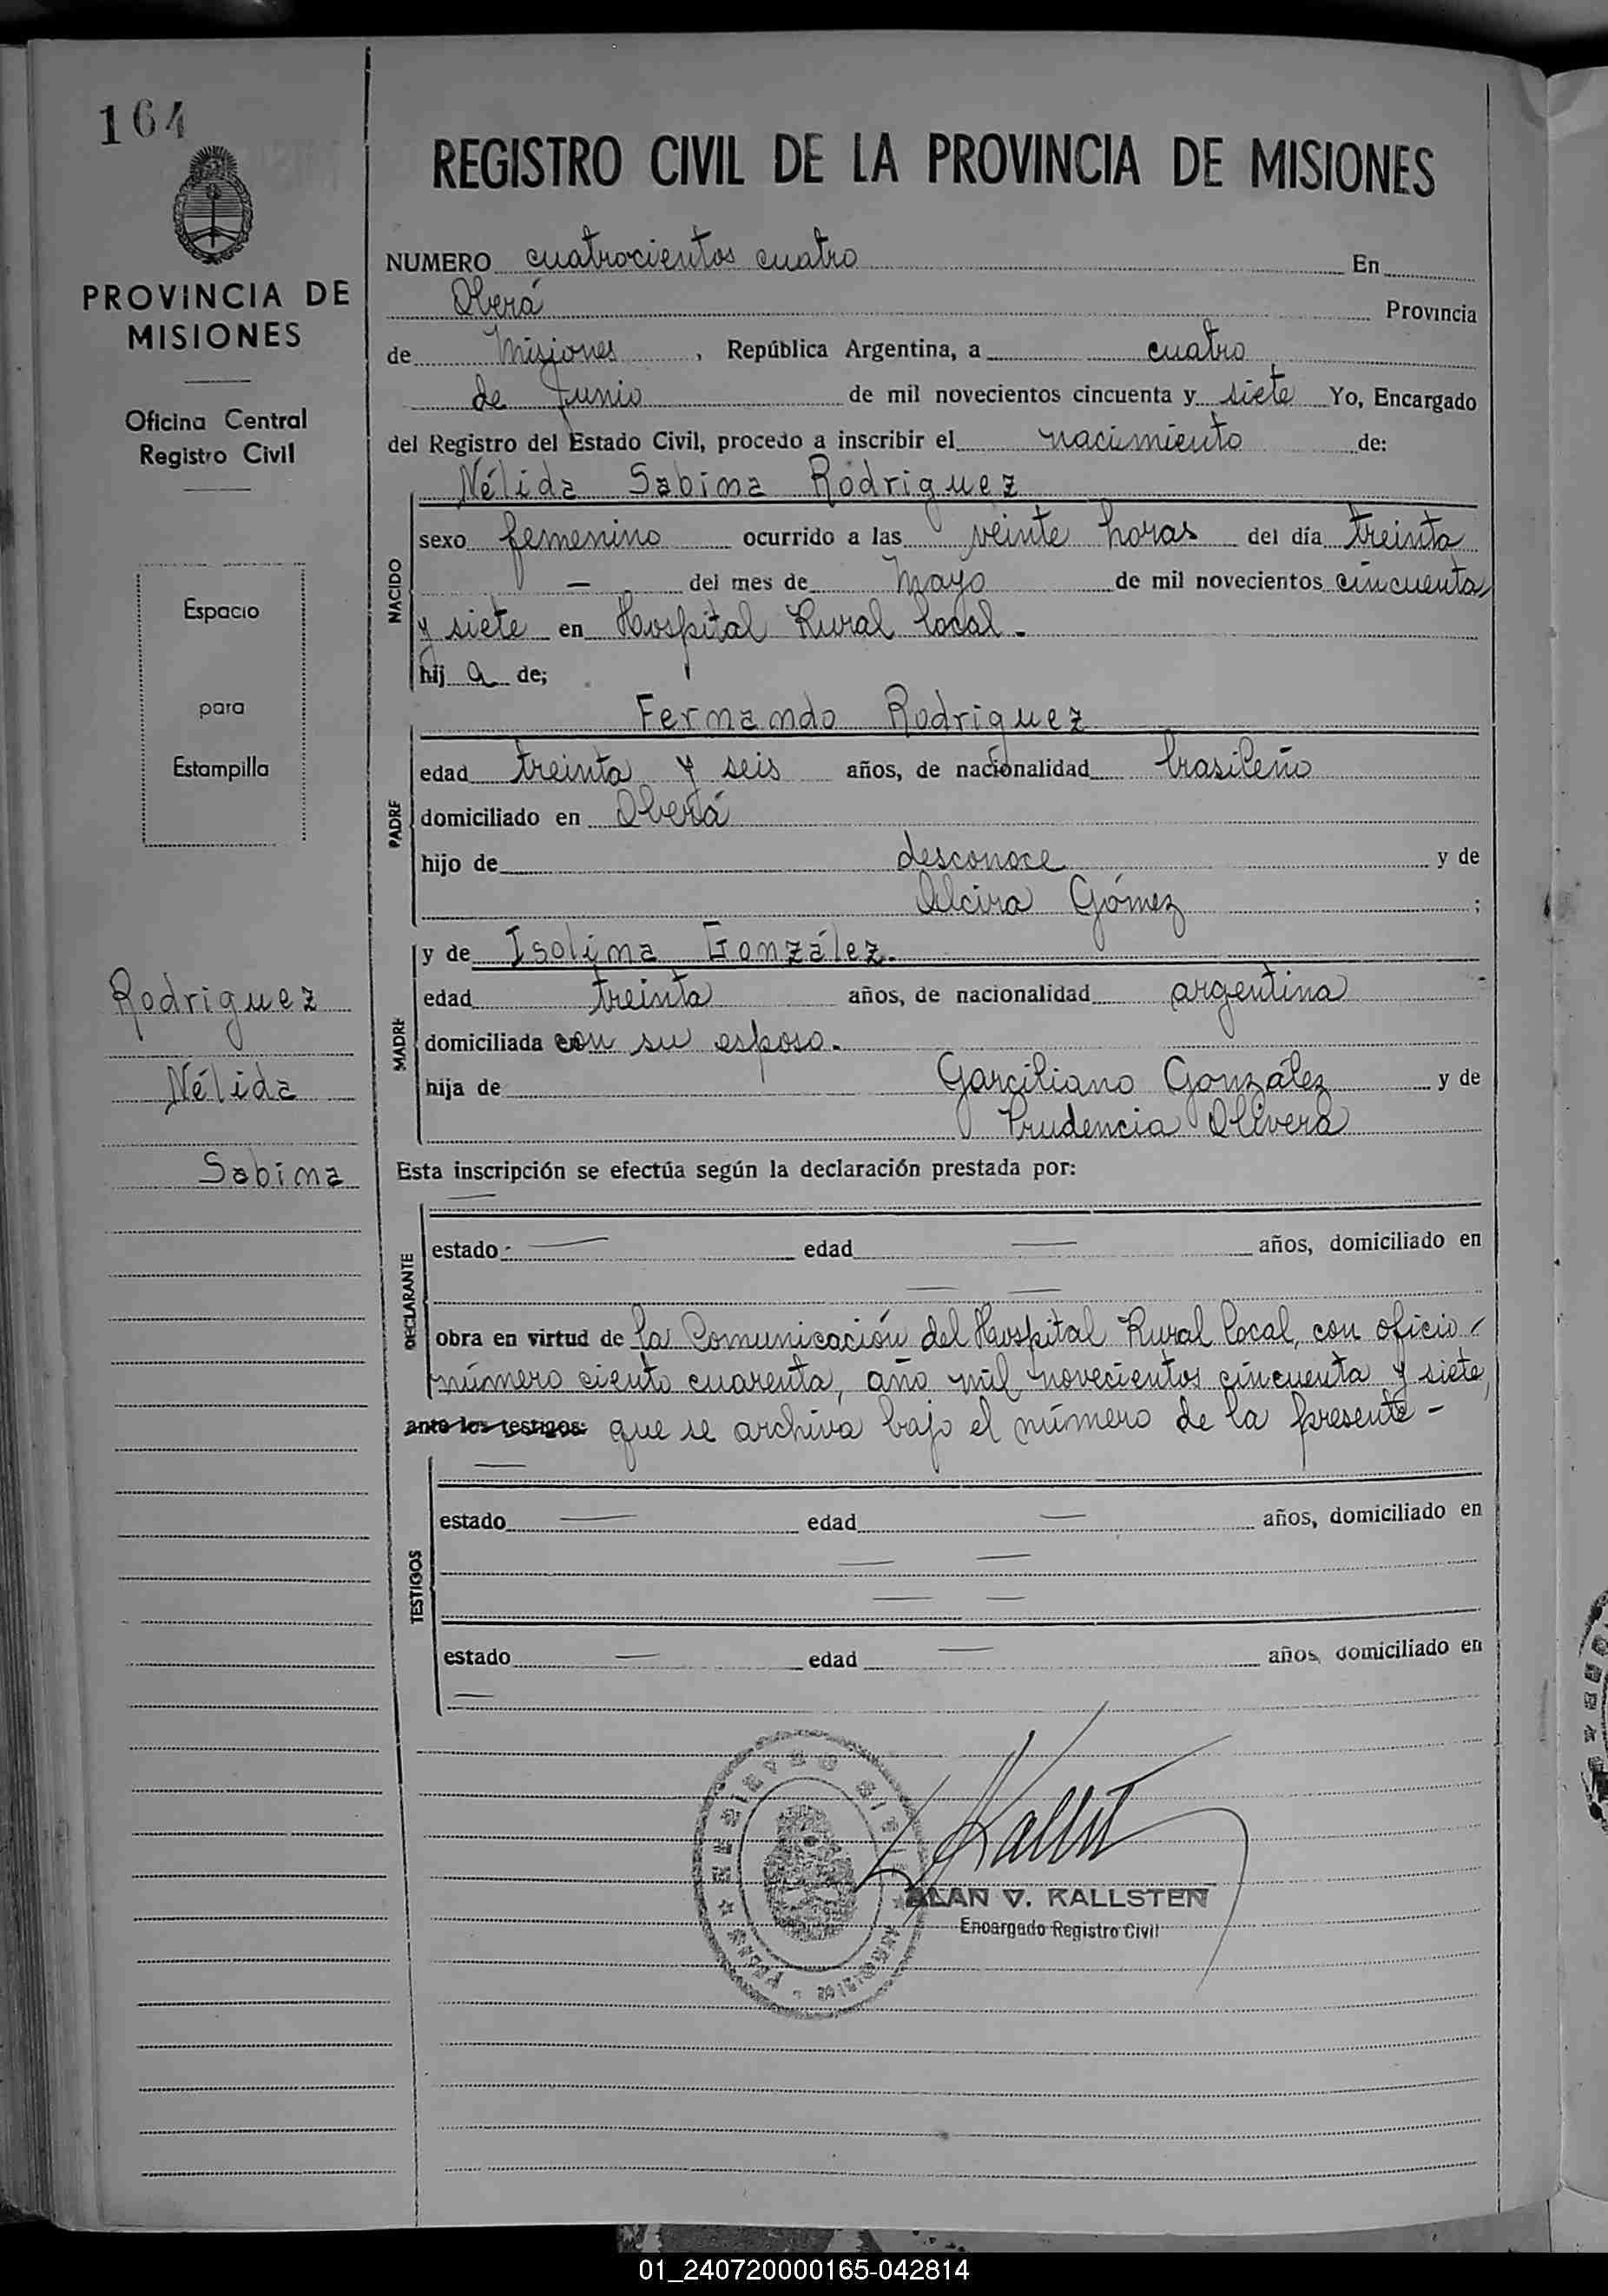 164
REGISTRO CIVIL DE LA PROVINCIA DE MISIONES
PROVINCIA DE
MISIONES
Oficina Central
Registro Civil
Espacio
para
Estampilla
Rodriguez
Nélida
Sabina
NUMERO cuatrocientos cuatro En
Oberá Provincia
de Misiones, República Argentina, a cuatro
de Junio de mil novecientos cincuenta y siete Yo, Encargado
del Registro del Estado Civil, procedo a inscribir el nacimiento de:
Nélida Sabina Rodriguez
NACIDO
sexo femenino ocurrido a las veinte horas del día treinta
— del mes de Mayo de mil novecientos cincuenta
y siete en Hospital Rural local.-
hij a de;
Fernando Rodriguez
PADRE
edad treinta y seis años, de nacionalidad brasileño
domiciliado en Oberá
hijo de desconoce y de
Alcira Gómez ;
MADRE
y de Isolina González.-
edad treinta años, de nacionalidad argentina
domiciliada con su esposo.-
hija de Garciliano González y de
Prudencia Olivera
Esta inscripción se efectúa según la declaración prestada por:
—
DECLARANTE
estado — edad — años, domiciliado en
— —
obra en virtud de la Comunicación del Hospital Rural local, con oficio -
número ciento cuarenta, año mil novecientos cincuenta y siete,
ante los testigos: que se archiva bajo el número de la presente -
—
TESTIGOS
estado — edad — años, domiciliado en
— —
— —
estado — edad — años, domiciliado en
—
REGISTRO CIVIL
MISIONES
Kallst
ALAN V. KALLSTEN
Encargado Registro Civil
01_240720000165-042814